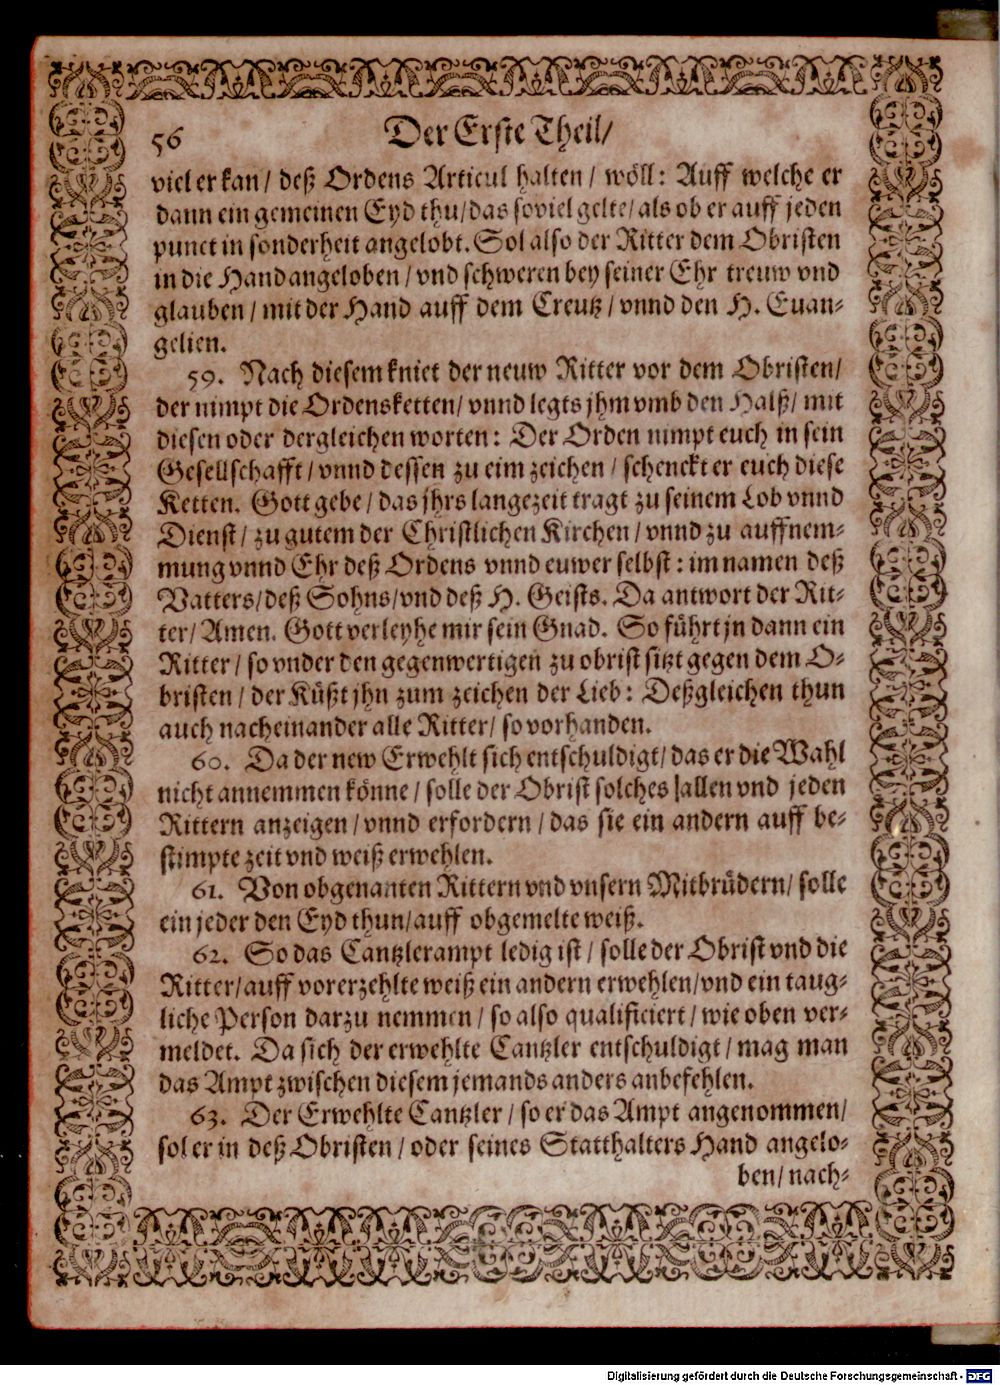 56 Der Erste Theil/
viel er kan/ deß Ordens Articul halten/ wöll: Auff welche er
dann ein gemeinen Eyd thu/ das soviel gelte/ als ob er auff jeden
punct in sonderheit angelobt. Sol also der Ritter dem Obristen
in die Hand angeloben/ vnd schweren bey seiner Ehr treuw vnd
glauben/ mit der Hand auff dem Creutz/ vnnd den H. Euan-
gelien.
59. Nach diesem kniet der neuw Ritter vor dem Obristen/
der nimpt die Ordensketten/ vnnd legts jhm vmb den Halß/ mit
diesen oder dergleichen worten: Der Orden nimpt euch in sein
Gesellschafft/ vnnd dessen zu eim zeichen/ schenckt er euch diese
Ketten. Gott gebe/ das jhrs langezeit tragt zu seinem Lob vnnd
Dienst/ zu gutem der Christlichen Kirchen/ vnnd zu auffnem-
mung vnnd Ehr deß Ordens vnnd euwer selbst: im namen deß
Vatters/ deß Sohns/ vnd deß H. Geists. Da antwort der Rit-
ter/ Amen. Gott verleyhe mir sein Gnad. So führt jn dann ein
Ritter/ so vnder den gegenwertigen zu obrist sitzt gegen dem O-
bristen/ der Küßt jhn zum zeichen der Lieb: Deßgleichen thun
auch nacheinander alle Ritter/ so vorhanden.
60. Da der new Erwehlt sich entschuldigt/ das er die Wahl
nicht annemmen könne/ solle der Obrist solches allen vnd jeden
Rittern anzeigen/ vnnd erfordern/ das sie ein andern auff be-
stimpte zeit vnd weiß erwehlen.
61. Von obgenanten Rittern vnd vnsern Mitbrüdern/ solle
ein jeder den Eyd thun/ auff obgemelte weiß.
62. So das Cantzlerampt ledig ist/ solle der Obrist vnd die
Ritter/ auff vorerzehlte weiß ein andern erwehlen/ vnd ein taug-
liche Person darzu nemmen/ so also qualificiert/ wie oben ver-
meldet. Da sich der erwehlte Cantzler entschuldigt/ mag man
das Ampt zwischen diesem jemands anders anbefehlen.
63. Der Erwehlte Cantzler/ so er das Ampt angenommen/
sol er in deß Obristen/ oder seines Statthalters Hand angelo-
ben/ nach-
Digitalisierung gefördert durch die Deutsche Forschungsgemeinschaft - DFG